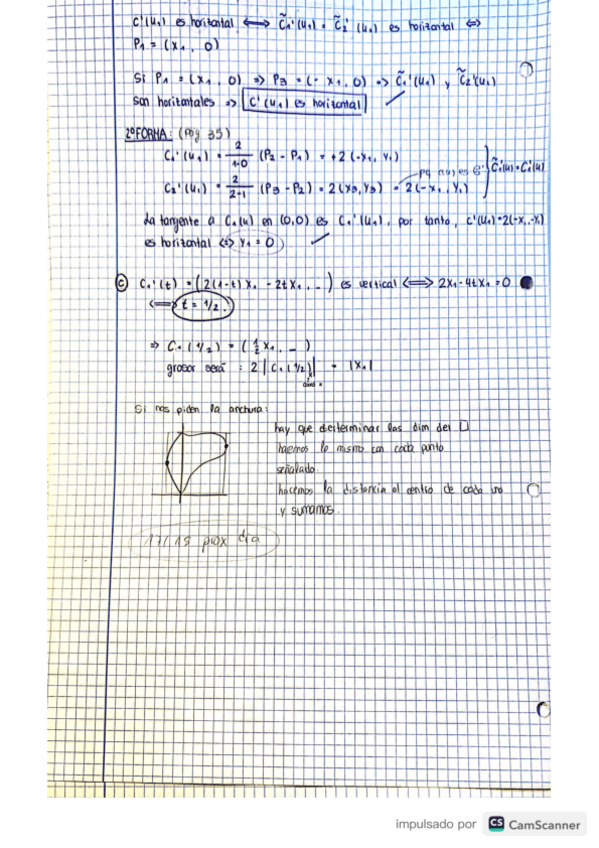 C'(u₁) es horizontal ⟺ C̃₁'(u₁) = C̃₂'(u₁) es horizontal ⟺
P₁ = (x₁, 0)
Si P₁ = (x₁, 0) ⇒ P₃ = (-x₁, 0) ⇒ C̃₁'(u₁) y C̃₂'(u₁)
son horizontales ⇒ C'(u₁) es horizontal ✓
2ª FORMA: (pag 35)
C₁'(u₁) = 2/1-0 (P₂ - P₁) = +2(-x₁, y₁)
C₂'(u₁) = 2/2-1 (P₃ - P₂) = 2(x₃, y₃) = 2(-x₁, y₁)
C₁'(u₁) = C₂'(u₁)
La tangente a C₁(u) en (0,0) es C₁'(u₁), por tanto, C'(u₁) = 2(-x₁,-y₁)
es horizontal ⟺ y₁ = 0 ✓
c) C₁'(t) = (2(1-t)x₁ - 2tx₁, _) es vertical ⟺ 2x₁ - 4tx₁ = 0
⟺ t = 1/2
⇒ C₁(1/2) = (1/2 x₁, _)
grosor será : 2 |C₁(1/2)| = |x₁|
Si nos piden la anchura:
hay que determinar las dim del □
haemos lo mismo con cada punto
señalado.
hacemos la distancia al centro de cada uno
y sumamos.
prox dia
impulsado por CS CamScanner